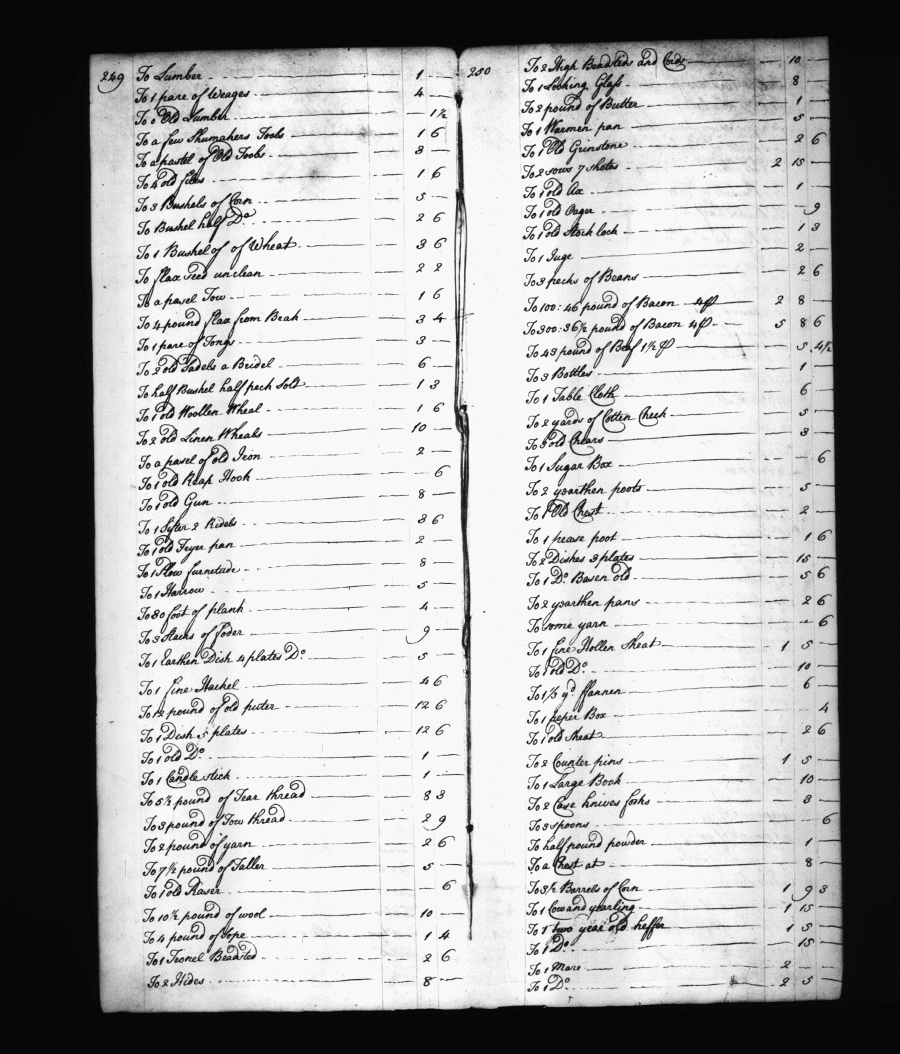 249
To Lumber 1 —
To 1 pare of Weages 4 —
To Old Lumber — 1½
To a few Shumakers Tools 1 6
To a pastel of Old Tools 3 —
To 4 old files 1 6
To 3 Bushels of Corn 5 —
To Bushel half Do 2 6
To 1 Bushel of of Wheat 3 6
To flax seed unclean 2 2
To a pasel Tow 1 6
To 4 pound flax from Beak 3 4
To 1 pare of Tongs 3 —
To 2 old Sadels a Bridel 6 —
To half Bushel half peck Solt 1 3
To 1 old Woollen Wheal 1 6
To 2 old Linen Wheals 10 —
To a pasel of old Iron 2 —
To 1 old Reap Hook 6
To 1 old Gun 8 —
To 1 Sifter 2 Ridels 3 6
To 1 old Fryer pan 2 —
To 1 Plow furnetude 8 —
To 1 Harrow 5 —
To 80 foot of plank 4 —
To 3 Stacks of foder 9 —
To 1 Earthen Dish 4 plates Do 5 —
To 1 fine Hackel 4 6
To 12 pound of old puter 12 6
To 1 Dish 5 plates 12 6
To 1 old Do 1 —
To 1 Candle stick 1 —
To 5½ pound of Tear thread 8 3
To 3 pound of Tow thread 2 9
To 2 pound of yarn 2 6
To 7½ pound of Taller 5 —
To 1 old Raser — 6
To 10½ pound of wool 10 —
To 4 pound of Sope 1 4
To 1 Bedsted 2 6
To 2 Hides 8 —
250
To 2 High Beadsteds and Cords 10 —
To 1 Looking Glass 8 —
To 2 pound of Butter 1 —
To 1 Warmen pan 5 —
To 1 Old Grinstone 2 6
To 2 sows 7 shotes 2 15 —
To 1 old Ax 1 —
To 1 old Oager 9
To 1 old Stock lock 1 3
To 1 Juge 2 —
To 3 pecks of Beans 2 6
To 100:46 pound of Bacon 4 ₽ 2 8 —
To 300:36½ pound of Bacon 4 ₽ 5 8 6
To 43 pound of Beef 1½ ₽ 5 4½
To 3 Bottles 1 —
To 1 Table Cloth 6 —
To 2 yards of Cotten Check 5 —
To 3 old Chears 3 —
To 1 Sugar Box 6
To 2 yearthen poots 5 —
To 1 Old Chest 2 —
To 1 pease poot 1 6
To 2 Dishes 3 plates 15 —
To 1 Do Basen old 5 6
To 2 yearthen pans 2 6
To some yarn — 6
To 1 fine Hollen Sheat 1 5 —
To 1 old Do 10 —
To 1⅓ yd flannen 6 —
To 1 peper Box 4
To 1 old Sheat 2 6
To 2 Counter pins 1 5 —
To 1 Large Book 10 —
To 2 Case knives forks 3 —
To 3 spoons 6
To half pound powder 1 —
To a Chest at 8 —
To 3½ Barrels of Corn 1 9 3
To 1 Cow and yearling 1 15 —
To 1 two year old heffer 1 5 —
To 1 Do 15 —
To 1 Mare 2 —
To 1 Do 2 5 —